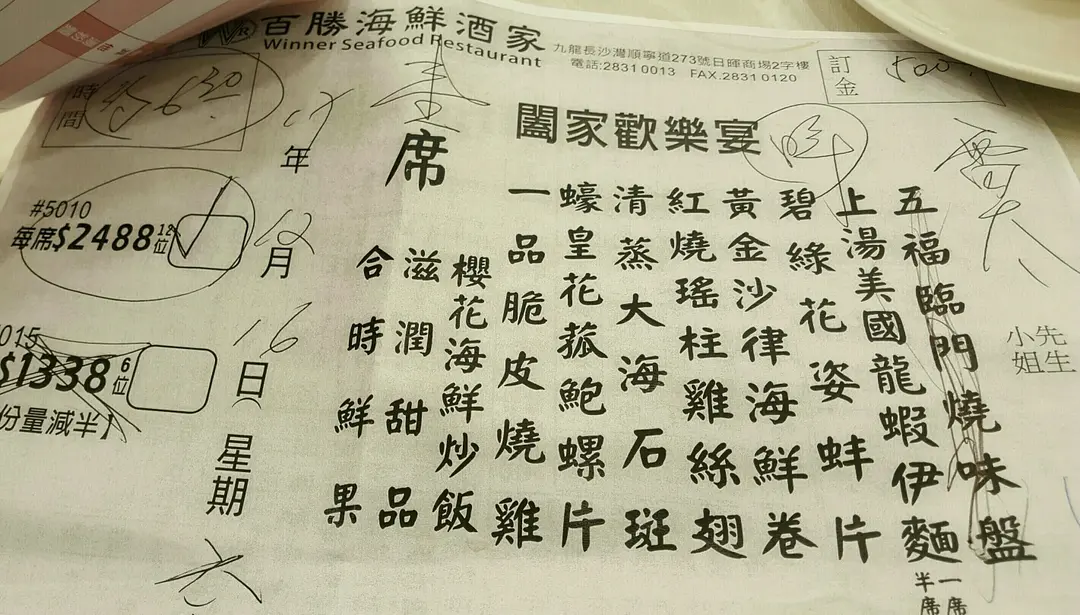 百勝海鮮酒家
Winner Seafood Restaurant
九龍長沙灣順寧道273號日暉商場2字樓
電話:28310013 FAX.28310120
訂金 500
時間 6:30
17年
12月
16日
星期六
席
闔家歡樂宴
小姐 先生
五福臨門燒味盤
上湯美國龍蝦伊麵
一席
半席
碧綠花姿蚌片
黃金沙律海鮮卷
紅燒瑤柱雞絲翅
清蒸大海石斑
蠔皇花菰鮑螺片
一品脆皮燒雞
櫻花海鮮炒飯
滋潤甜品
合時鮮果
#5010
每席$2488 12位
015
$1338 6位
份量減半】